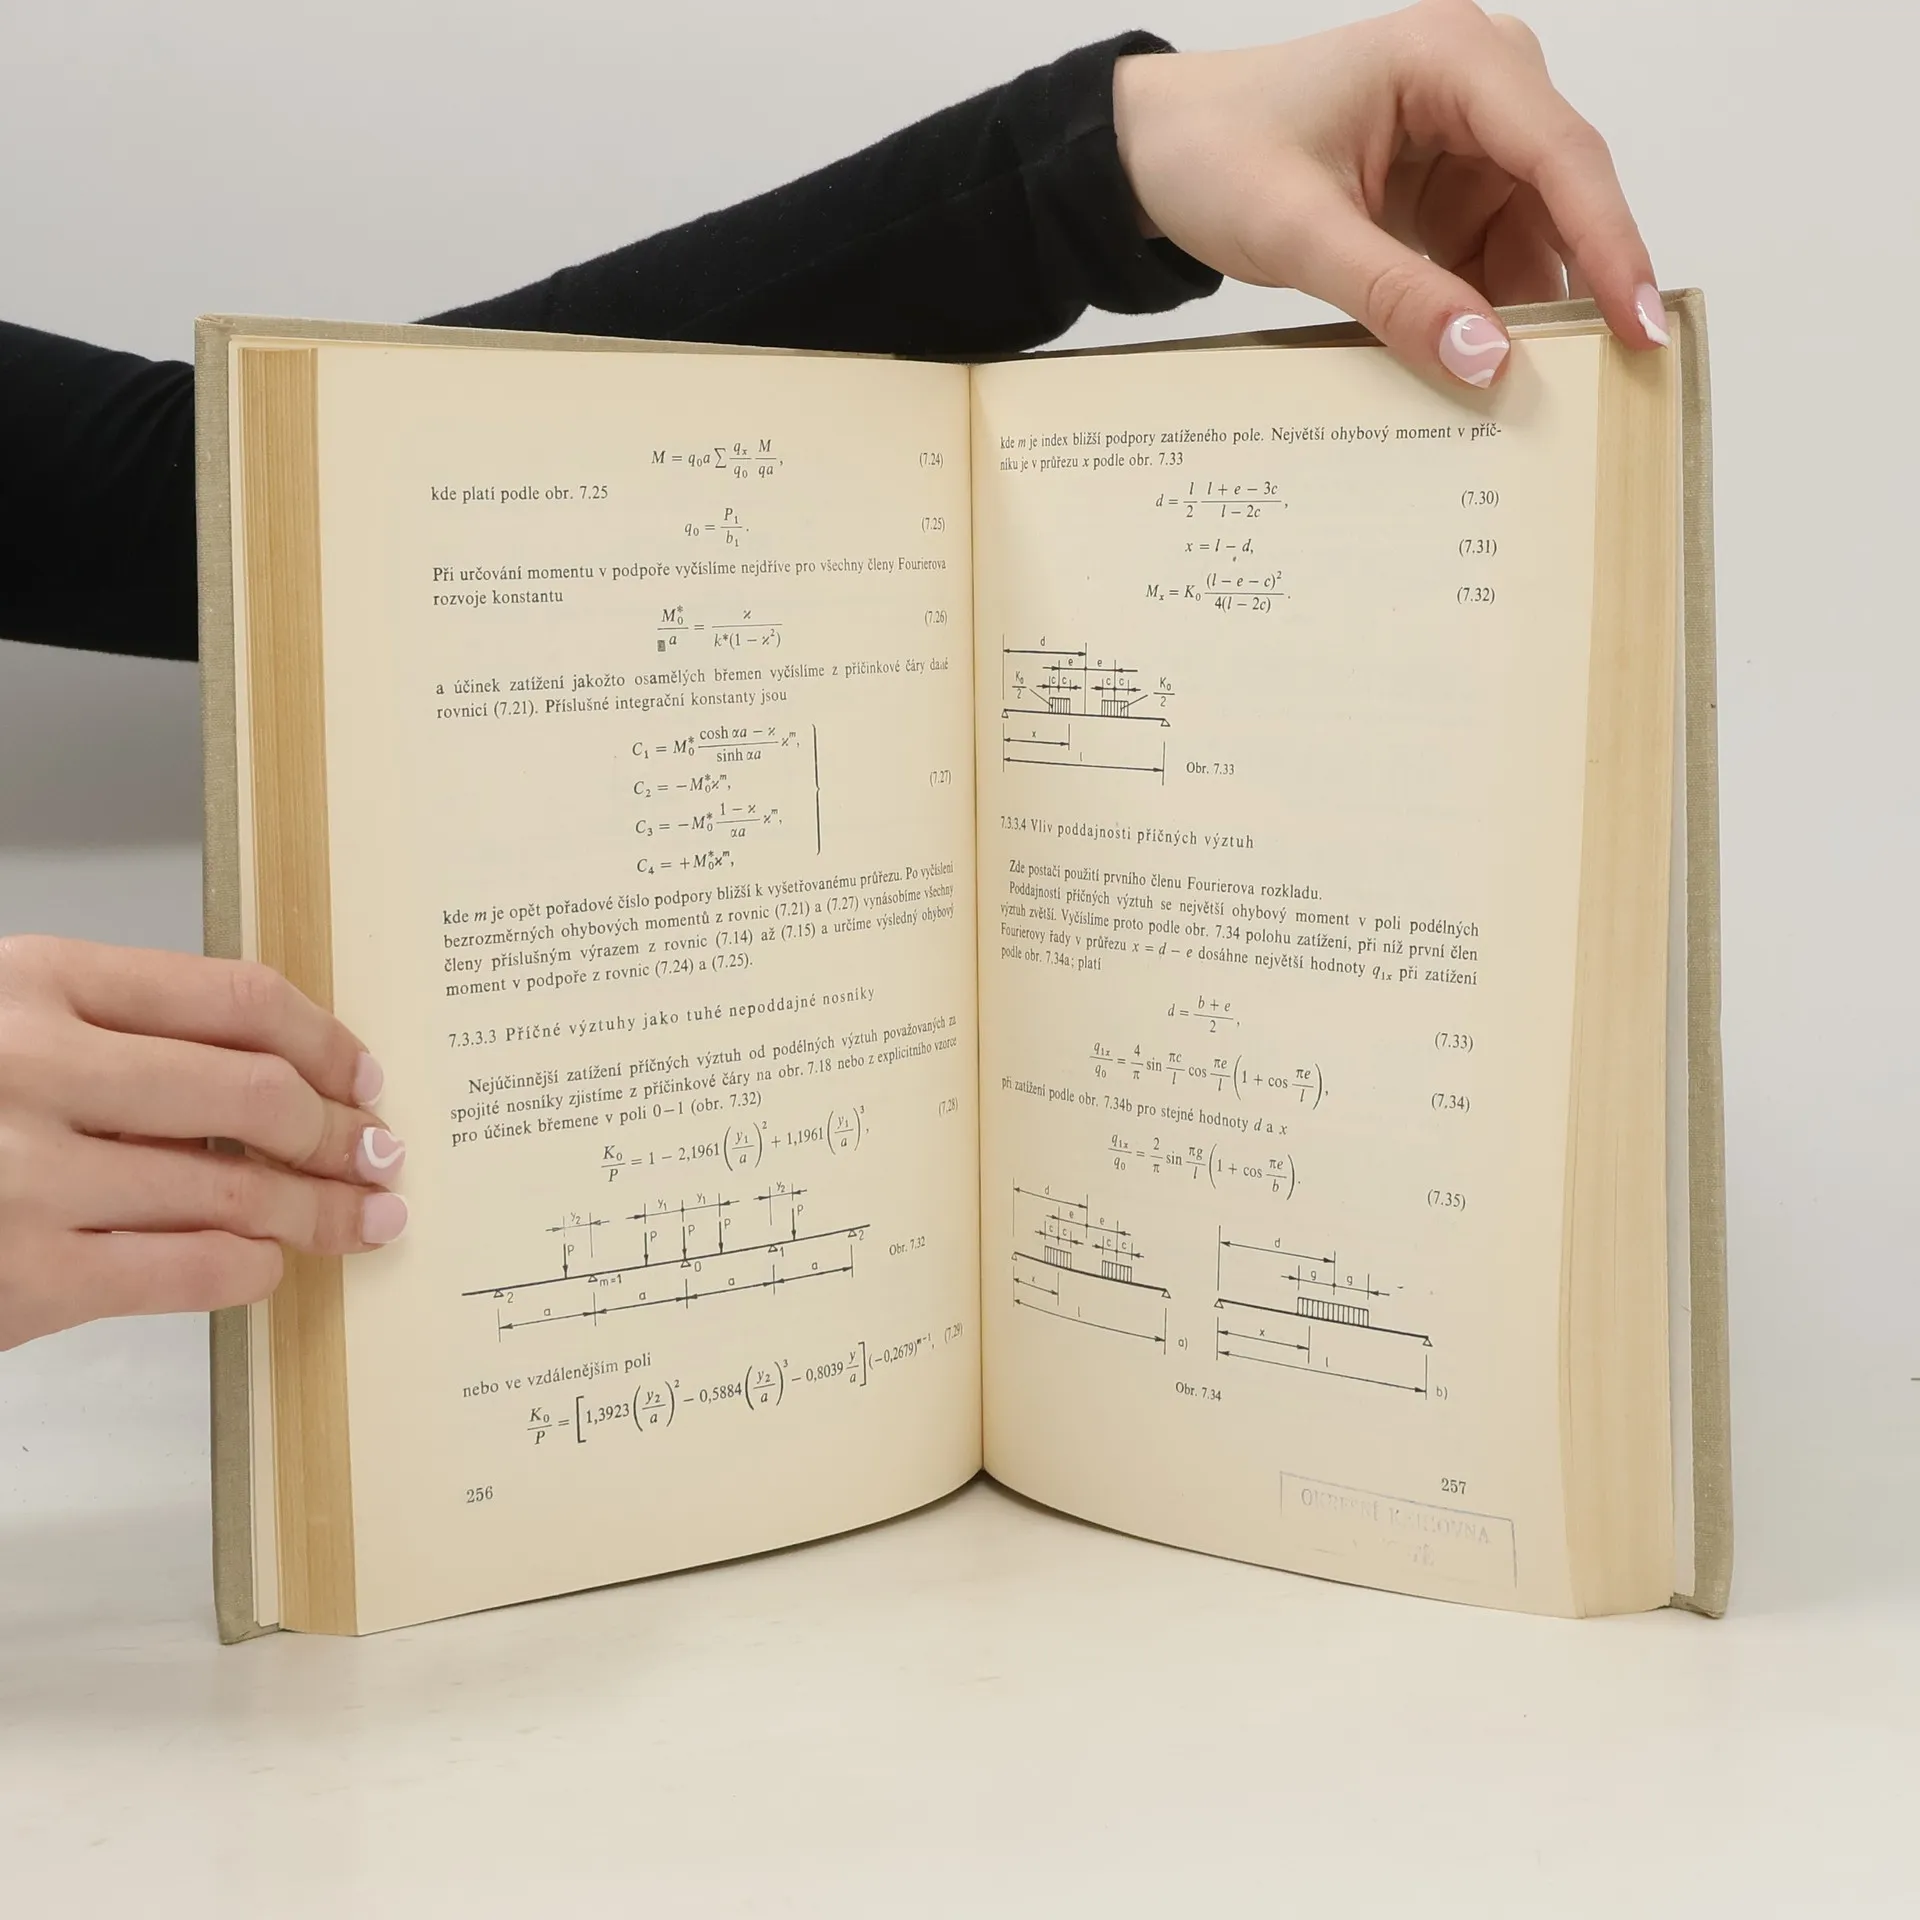 M = q₀a ∑ qₓ/q₀ M/qa, (7.24)
kde platí podle obr. 7.25
q₀ = P₁/b₁. (7.25)
Při určování momentu v podpoře vyčíslíme nejdříve pro všechny členy Fourierova
rozvoje konstantu
M₀*/a = ϰ/k*(1 − ϰ²) (7.26)
a účinek zatížení jakožto osamělých břemen vyčíslíme z příčinkové čáry dané
rovnicí (7.21). Příslušné integrační konstanty jsou
C₁ = M₀* (cosh αa − ϰ)/(sinh αa) ϰᵐ,
C₂ = −M₀*ϰᵐ,
(7.27)
C₃ = −M₀* (1 − ϰ)/(αa) ϰᵐ,
C₄ = +M₀*ϰᵐ,
kde m je opět pořadové číslo podpory bližší k vyšetřovanému průřezu. Po vyčíslení
bezrozměrných ohybových momentů z rovnic (7.21) a (7.27) vynásobíme všechny
členy příslušným výrazem z rovnic (7.14) až (7.15) a určíme výsledný ohybový
moment v podpoře z rovnic (7.24) a (7.25).
7.3.3.3 Příčné výztuhy jako tuhé nepoddajné nosníky
Nejúčinnější zatížení příčných výztuh od podélných výztuh považovaných za
spojité nosníky zjistíme z příčinkové čáry na obr. 7.18 nebo z explicitního vzorce
pro účinek břemene v poli 0−1 (obr. 7.32)
K₀/P = 1 − 2,1961 (y₁/a)² + 1,1961 (y₁/a)³, (7.28)
y₂ y₁ y₁ y₂
P P P P P
2 m=1 0 1 2
a a a a
Obr. 7.32
nebo ve vzdálenějším poli
K₀/P = [1,3923 (y₂/a)² − 0,5884 (y₂/a)³ − 0,8039 y/a] (−0,2679)ᵐ⁻¹, (7.29)
256
kde m je index bližší podpory zatíženého pole. Největší ohybový moment v příč-
níku je v průřezu x podle obr. 7.33
d = l/2 (l + e − 3c)/(l − 2c), (7.30)
x = l − d, (7.31)
Mₓ = K₀ (l − e − c)²/4(l − 2c). (7.32)
d
e e
K₀/2 c c c c K₀/2
x
l
Obr. 7.33
7.3.3.4 Vliv poddajnosti příčných výztuh
Zde postačí použití prvního členu Fourierova rozkladu.
Poddajností příčných výztuh se největší ohybový moment v poli podélných
výztuh zvětší. Vyčíslíme proto podle obr. 7.34 polohu zatížení, při níž první člen
Fourierovy řady v průřezu x = d − e dosáhne největší hodnoty q₁ₓ při zatížení
podle obr. 7.34a; platí
d = (b + e)/2, (7.33)
q₁ₓ/q₀ = 4/π sin πc/l cos πe/l (1 + cos πe/l), (7.34)
při zatížení podle obr. 7.34b pro stejné hodnoty d a x
q₁ₓ/q₀ = 2/π sin πg/l (1 + cos πe/b). (7.35)
d
e e
c c c c
x
l
a)
d
g g
x
l
b)
Obr. 7.34
257
KNIHOVNA